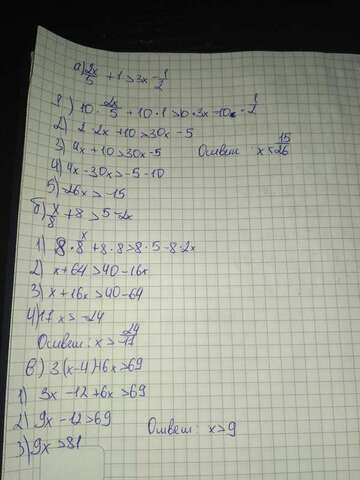 а) 2x/5 + 1 > 3x - 1/2
1) 10 · 2x/5 + 10 · 1 > 10 · 3x - 10 · 1/2
2) 2 · 2x + 10 > 30x - 5
3) 4x + 10 > 30x - 5 Ответ: x < 15/26
4) 4x - 30x > -5 - 10
5) -26x > -15
б) x/8 + 8 > 5 - 2x
1) 8 · x/8 + 8 · 8 > 8 · 5 - 8 · 2x
2) x + 64 > 40 - 16x
3) x + 16x > 40 - 64
4) 17x > -24
Ответ: x > -24/17
в) 3(x-4)+6x > 69
1) 3x - 12 + 6x > 69
2) 9x - 12 > 69 Ответ: x > 9
3) 9x > 81